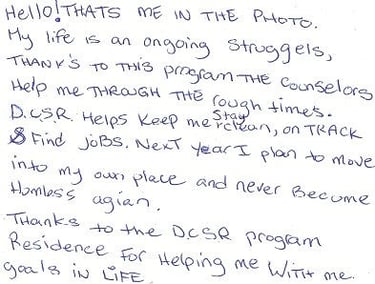 Hello! THATS ME IN THE PHOTO.
My life is an ongoing struggels,
THANK'S TO THIS program THE Counselors
Help me THROUGH THE rough times.
D.C.S.R. Helps Keep me Stay clean, on TRACK
& Find JOBS. NEXT year I plan to move
into my own place and never Become
Homless agian.
THanks to the D.C.S.R program
Residence For Helping me WITH me.
goals in LIFE.